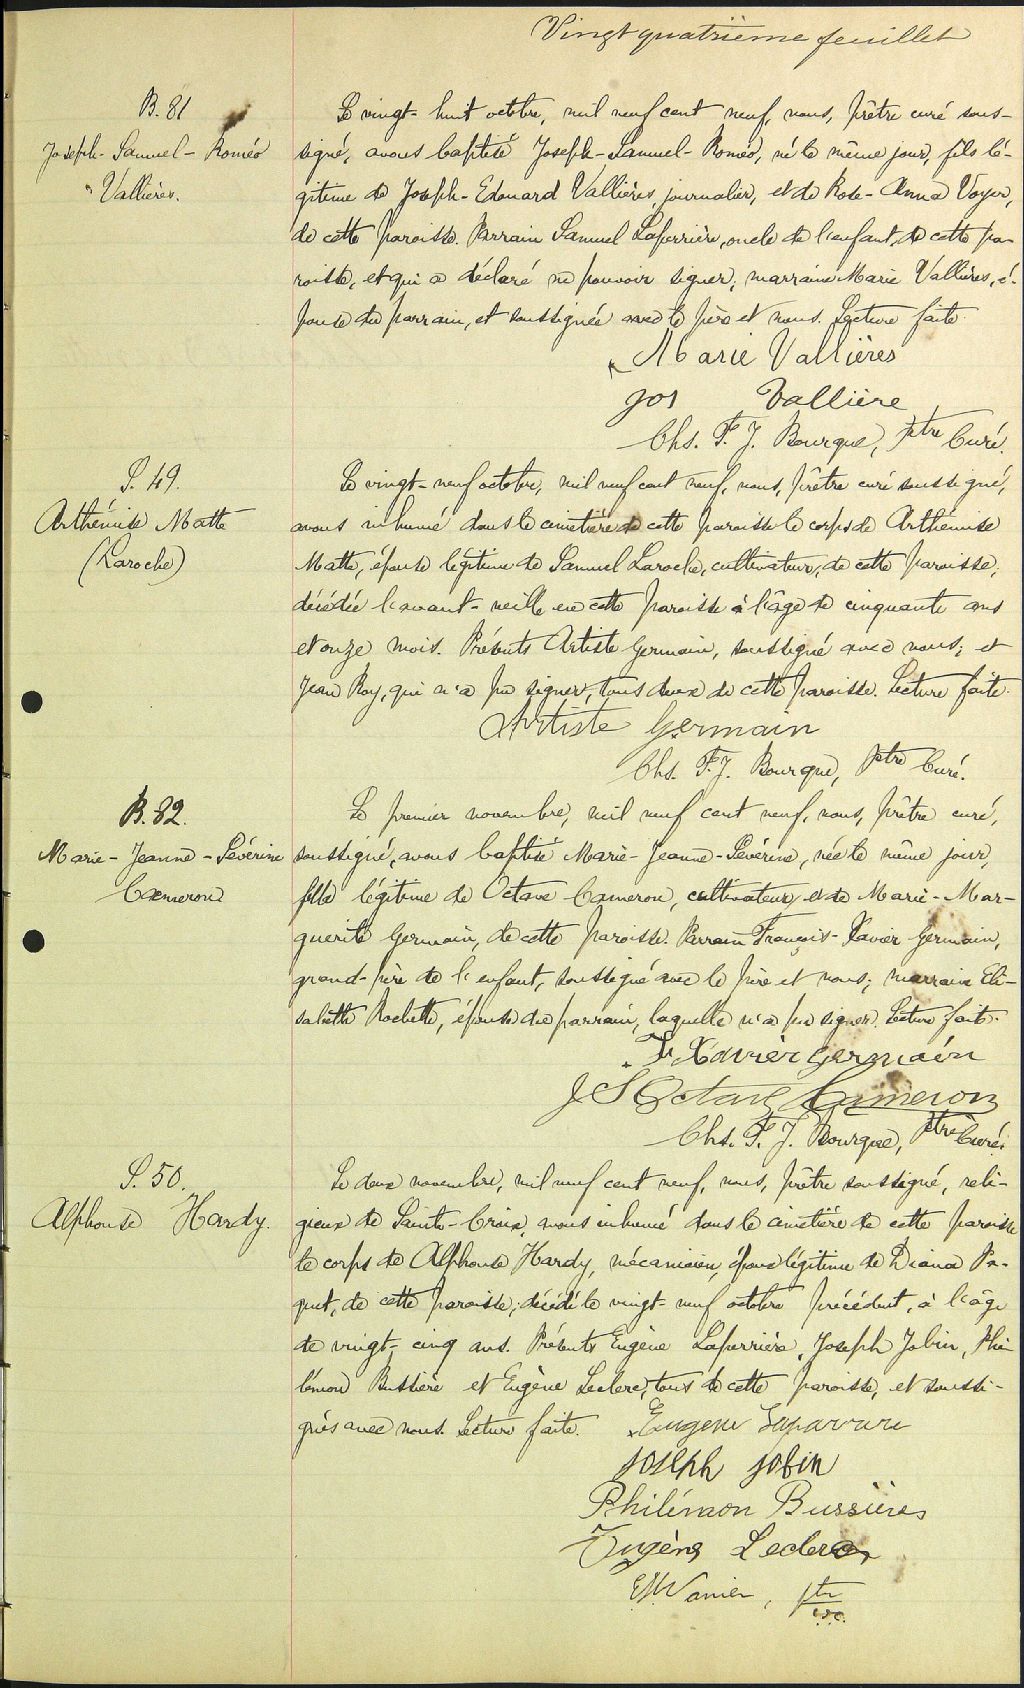 Vingt quatrième feuillet
B. 81
Joseph-Samuel-Roméo
Vallières.
Le vingt-huit octobre, mil neuf cent neuf, nous, prêtre curé sous-
signé, avons baptisé Joseph-Samuel-Roméo, né le même jour, fils lé-
gitime de Joseph-Edouard Vallières, journalier, et de Rose-Anna Voyer,
de cette paroisse. Parrain Samuel Laferrière, oncle de l'enfant, de cette pa-
roisse, et qui a déclaré ne pouvoir signer; marraine Marie Vallières, é-
pouse du parrain, et soussignée avec le père et nous. Lecture faite.
Marie Vallières
Jos Vallière
Chs. F. J. Bourque, Ptre Curé.
S. 49.
Arthémise Matte
(Laroche)
Le vingt-neuf octobre, mil neuf cent neuf, nous, prêtre curé soussigné,
avons inhumé dans le cimetière de cette paroisse le corps de Arthémise
Matte, épouse légitime de Samuel Laroche, cultivateur, de cette paroisse,
décédée l'avant-veille en cette paroisse à l'âge de cinquante ans
et onze mois. Présents Artiste Germain, soussigné avec nous; et
Jean Roy, qui n'a pu signer, tous deux de cette paroisse. Lecture faite.
Artiste Germain
Chs. F. J. Bourque, Ptre Curé.
B. 82.
Marie-Jeanne-Sévérine
Cameron
Le premier novembre, mil neuf cent neuf, nous, prêtre curé,
soussigné, avons baptisé Marie-Jeanne-Sévérine, née le même jour,
fille légitime de Octave Cameron, cultivateur, et de Marie-Mar-
guerite Germain, de cette paroisse. Parrain François-Xavier Germain,
grand-père de l'enfant, soussigné avec le père et nous; marraine Eli-
sabeth Rochette, épouse du parrain, laquelle n'a pu signer. Lecture faite.
Fr Xavier Germain
J S Octave Cameron
Chs. F. J. Bourque, Ptre Curé.
S. 50.
Alphonse Hardy.
Le deux novembre, mil neuf cent neuf, nous, prêtre soussigné, reli-
gieux de Sainte-Croix, avons inhumé dans le cimetière de cette paroisse
le corps de Alphonse Hardy, mécanicien, époux légitime de Diana Pa-
quet, de cette paroisse, décédé le vingt-neuf octobre précédent, à l'âge
de vingt-cinq ans. Présents Eugène Laferrière, Joseph Jobin, Phi
lémon Bussière et Eugène Leclerc, tous de cette paroisse, et soussi-
gnés avec nous. Lecture faite. Eugene
Joseph Jobin
Philémon Bussières
Eugène Leclerc
Vanier, ptr
c.s.c.